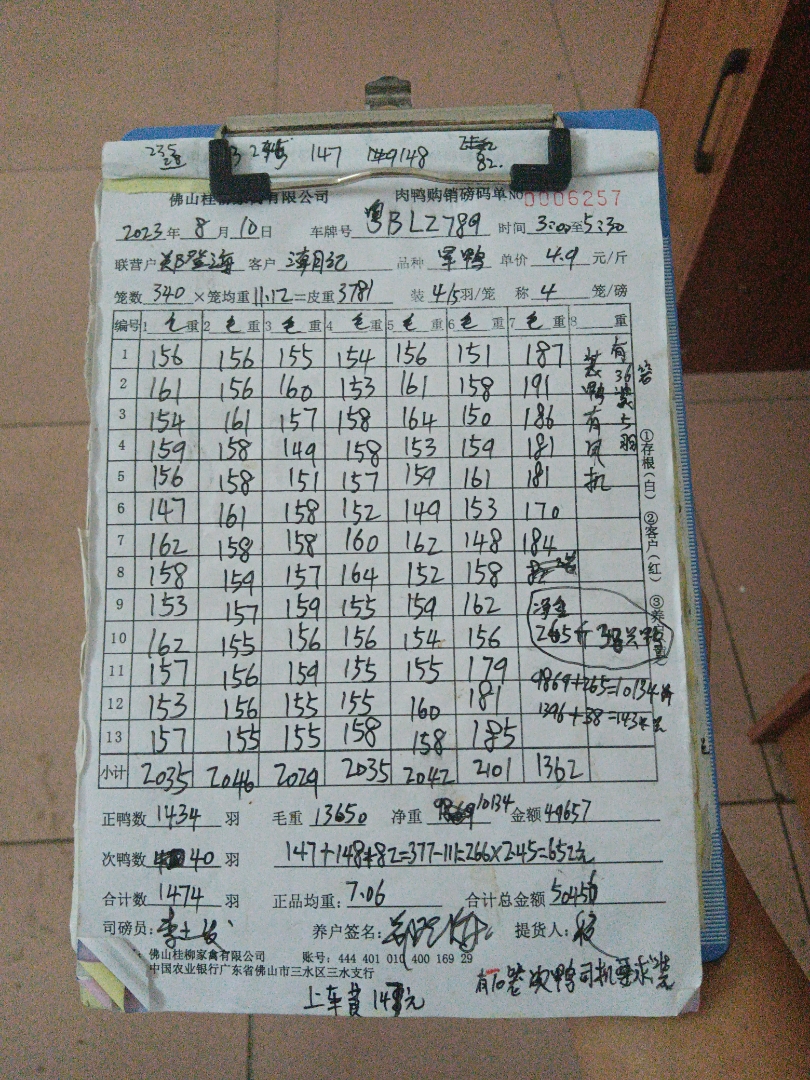 235 147 148 82
28
佛山桂柳家禽有限公司 肉鸭购销磅码单 No 0006257
2023年8月10日 车牌号 粤BLZ789 时间 3:00至5:30
联营户 客户 品种 单价 4.9 元/斤
笼数 340 ×笼均重 11.12 =皮重 3781 装 4/5 羽/笼 称 4 笼/磅
编号 1 毛重 2 毛重 3 毛重 4 毛重 5 毛重 6 毛重 7 毛重 8 重
1 156 156 155 154 156 151 187
2 161 156 160 153 161 158 191
3 154 161 157 158 164 150 186
4 159 158 149 158 153 159 181
5 156 158 151 157 159 161 181
6 147 161 158 152 149 153 170
7 162 158 158 160 162 148 184
8 158 159 157 164 152 158
9 153 157 159 155 159 162 净重
10 162 155 156 156 154 156 265斤
11 157 156 159 155 155 179 9869+265=10134斤
12 153 156 155 155 160 181 1396+38=1434只
13 157 155 155 158 158 185
小计 2035 2046 2029 2035 2042 2101 1362
有36笼装5羽
装鸭有风机
①存根(白) ②客户(红) ③养户
正鸭数 1434 羽 毛重 13650 净重 10134 金额 49657
次鸭数 40 羽 147+148+82=377-111=266×2.45=652元
合计数 1474 羽 正品均重: 7.06 合计总金额
司磅员: 养户签名: 提货人:
佛山桂柳家禽有限公司 账号: 444 401 010 400 169 29
中国农业银行广东省佛山市三水区三水支行
有10笼次鸭司机要求装
上车费 元